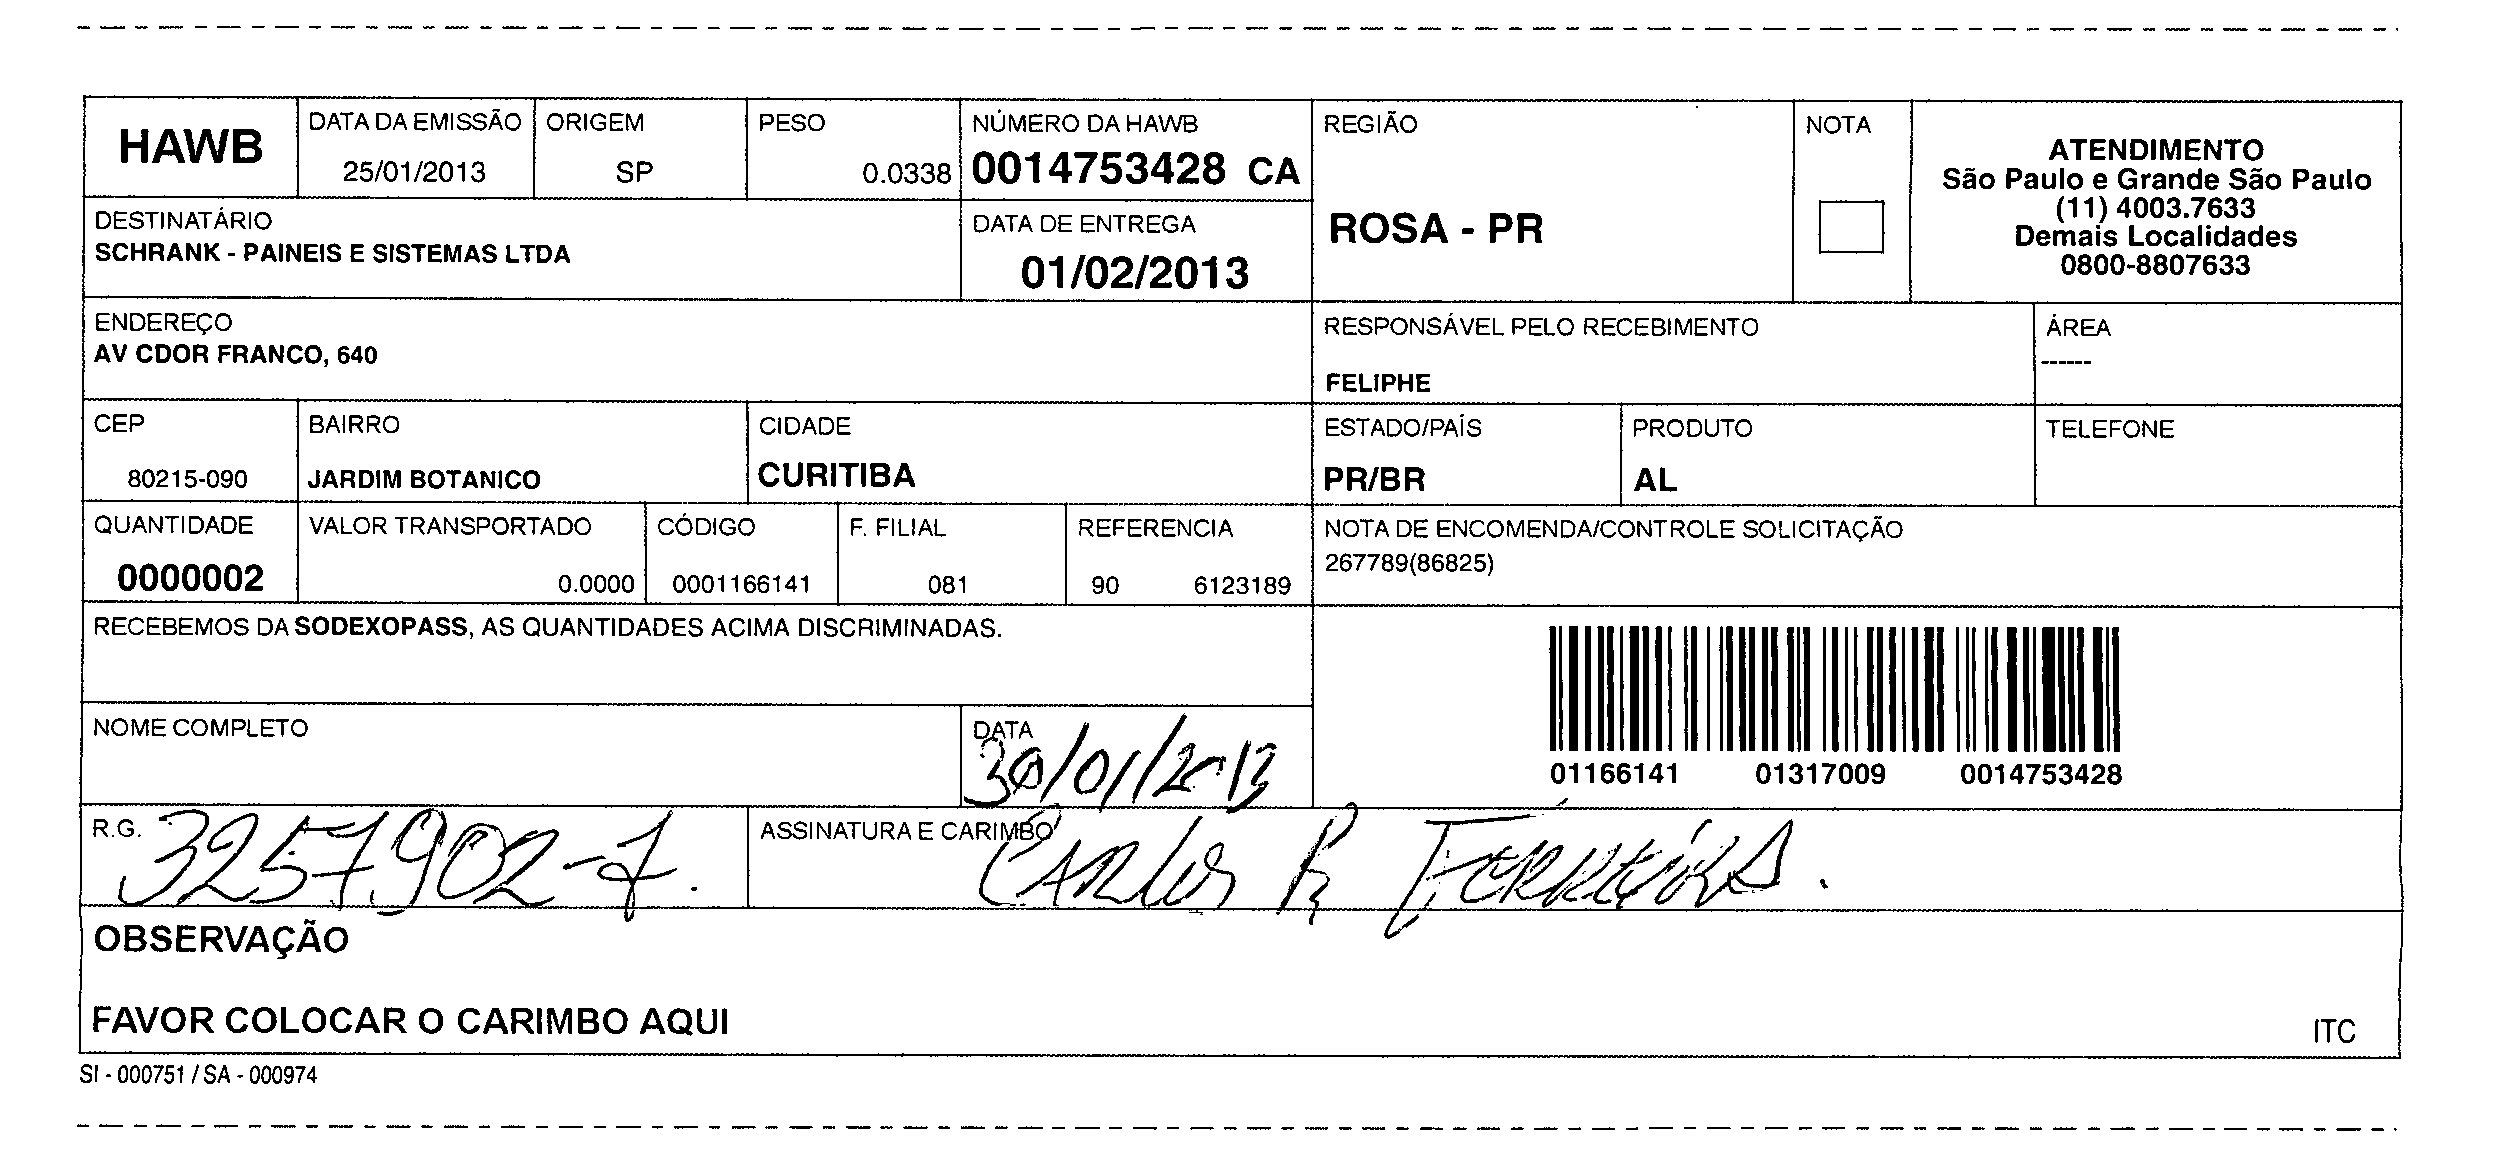 HAWB
DATA DA EMISSÃO
25/01/2013
ORIGEM
SP
PESO
0.0338
NÚMERO DA HAWB
0014753428 CA
REGIÃO
ROSA - PR
NOTA
ATENDIMENTO
São Paulo e Grande São Paulo
(11) 4003.7633
Demais Localidades
0800-8807633
DESTINATÁRIO
SCHRANK - PAINEIS E SISTEMAS LTDA
DATA DE ENTREGA
01/02/2013
ENDEREÇO
AV CDOR FRANCO, 640
RESPONSÁVEL PELO RECEBIMENTO
FELIPHE
ÁREA
------
CEP
80215-090
BAIRRO
JARDIM BOTANICO
CIDADE
CURITIBA
ESTADO/PAÍS
PR/BR
PRODUTO
AL
TELEFONE
QUANTIDADE
0000002
VALOR TRANSPORTADO
0.0000
CÓDIGO
0001166141
F. FILIAL
081
REFERENCIA
90 6123189
NOTA DE ENCOMENDA/CONTROLE SOLICITAÇÃO
267789(86825)
RECEBEMOS DA SODEXOPASS, AS QUANTIDADES ACIMA DISCRIMINADAS.
01166141 01317009 0014753428
NOME COMPLETO
DATA
30/01/2013
R.G.
3257902-7.
ASSINATURA E CARIMBO
Carlos R
OBSERVAÇÃO
FAVOR COLOCAR O CARIMBO AQUI
ITC
SI - 000751 / SA - 000974